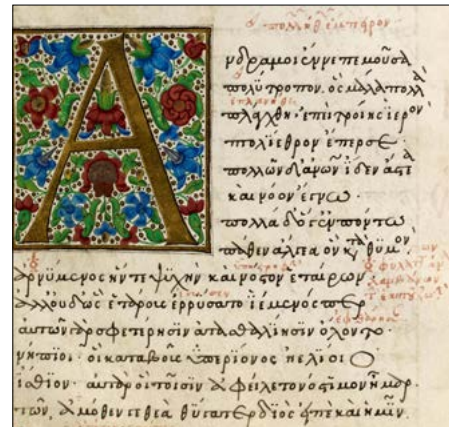 Ἄνδρα μοι ἔννεπε μοῦσα
πολύτροπον. ὃς μάλα πολλὰ
ἐπλανήθη
πλάγχθη. ἐπεὶ τροίης ἱερὸν
πτολίεθρον ἔπερσε.
πολλῶν δ' ἀνθρώπων ἴδεν ἄστεα
καὶ νόον ἔγνω.
πολλὰ δ' ὅγ' ἐν πόντω
πάθεν ἄλγεα ὃν κατὰ θυμὸν
ἀρνύμενος ἥν τε ψυχὴν καὶ νόστον ἑταίρων
ἀλλ' οὐδ' ὣς ἑτάρους ἐρρύσατο ἱέμενός περ
αὐτῶν γὰρ σφετέρησιν ἀτασθαλίησιν ὄλοντο.
νήπιοι. οἳ κατὰ βοῦς ὑπερίονος ἠελίοιο
ἤσθιον. αὐτὰρ ὁ τοῖσιν ἀφείλετο νόστιμον ἦμαρ.
τῶν ἁμόθεν γε θεὰ θύγατερ διὸς εἰπὲ καὶ ἡμῖν.